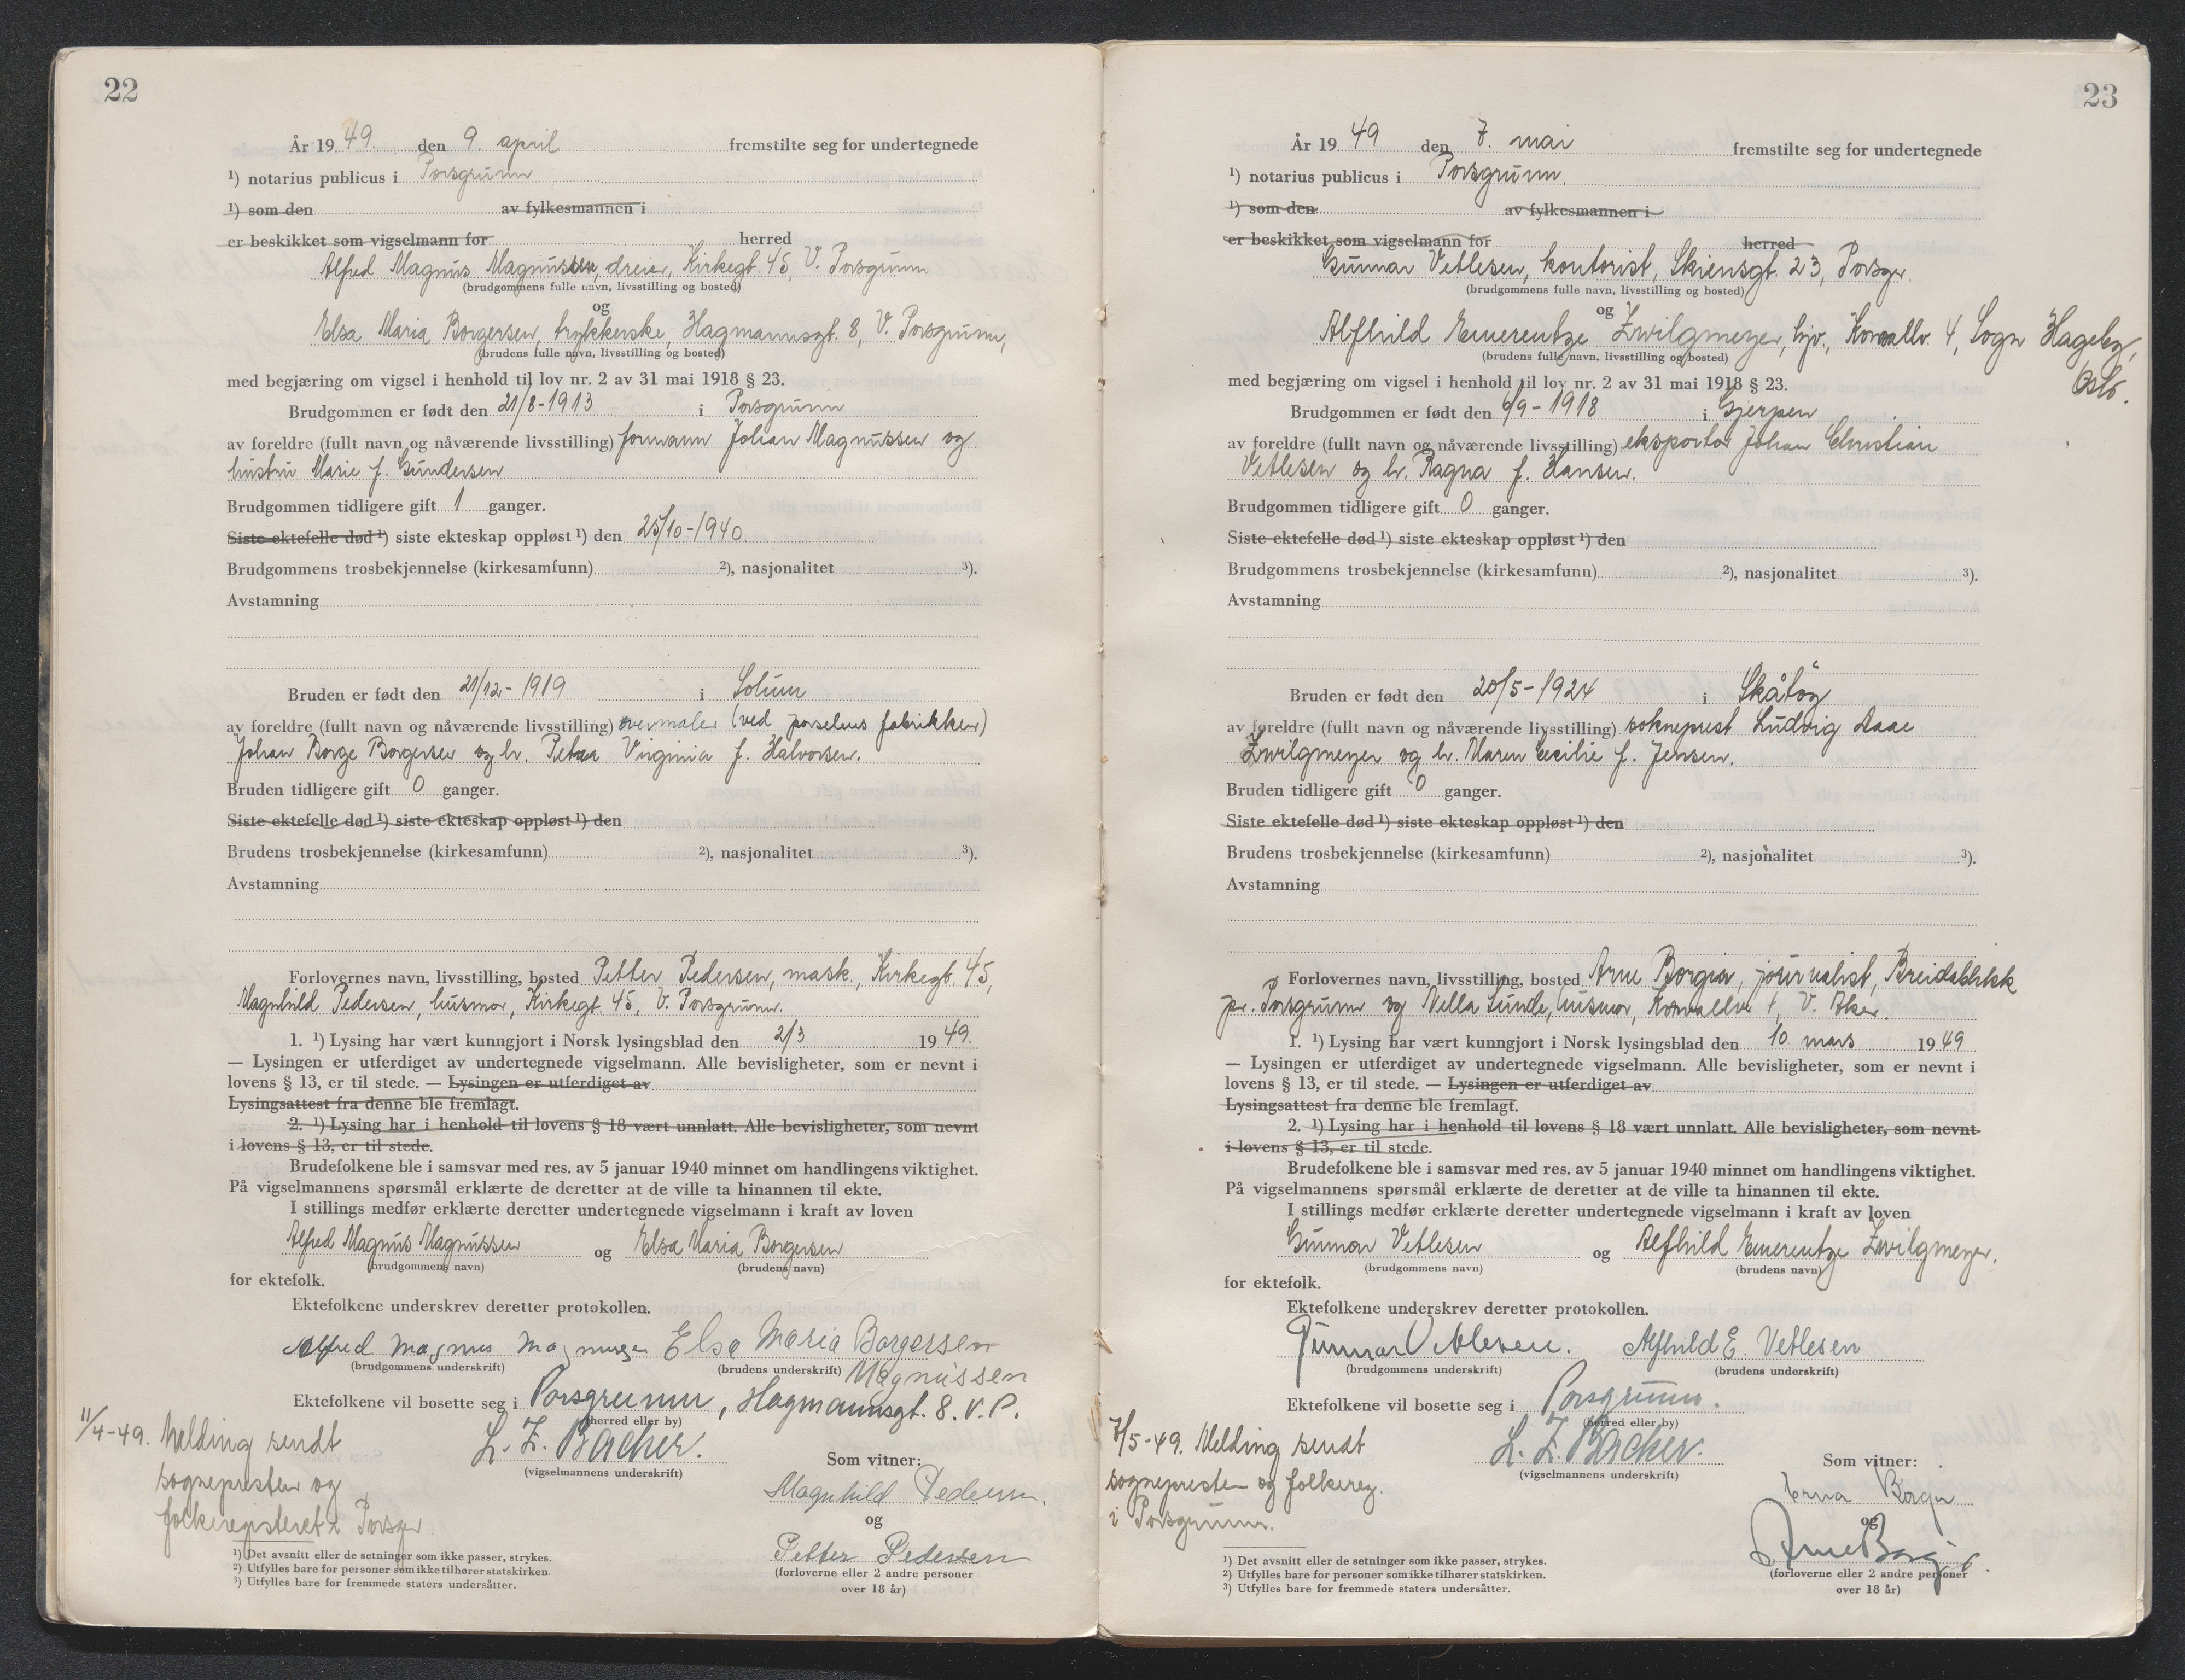 22
År 1949. den 9. april fremstilte seg for undertegnede
¹) notarius publicus i Porsgrunn
¹) som den av fylkesmannen i
er beskikket som vigselmann for herred
Alfred Magnus Magnussen, dreier, Kirkegt. 45, V. Porsgrunn
(brudgommens fulle navn, livsstilling og bosted)
og
Elsa Maria Borgersen, trykkerske, Hagmannsgt. 8, V. Porsgrunn,
(brudens fulle navn, livsstilling og bosted)
med begjæring om vigsel i henhold til lov nr. 2 av 31 mai 1918 § 23.
Brudgommen er født den 21/8-1913 i Porsgrunn
av foreldre (fullt navn og nåværende livsstilling) formann Johan Magnussen og
hustru Marie f. Gundersen
Brudgommen tidligere gift 1 ganger.
Siste ektefelle død ¹) siste ekteskap oppløst ¹) den 25/10-1940.
Brudgommens trosbekjennelse (kirkesamfunn) ²), nasjonalitet ³).
Avstamning
Bruden er født den 21/12-1919 i Solum
av foreldre (fullt navn og nåværende livsstilling) overmaler (ved porselensfabrikken)
Johan Borge Borgersen og h. Petra Virginia f. Halvorsen.
Bruden tidligere gift 0 ganger.
Siste ektefelle død ¹) siste ekteskap oppløst ¹) den
Brudens trosbekjennelse (kirkesamfunn) ²), nasjonalitet ³).
Avstamning
Forlovernes navn, livsstilling, bosted Petter Pedersen, mask., Kirkegt. 45,
Magnhild Pedersen, husmor, Kirkegt. 45, V. Porsgrunn.
1. ¹) Lysing har vært kunngjort i Norsk lysingsblad den 2/3 1949.
— Lysingen er utferdiget av undertegnede vigselmann. Alle bevisligheter, som er nevnt i
lovens § 13, er til stede. — Lysingen er utferdiget av
Lysingsattest fra denne ble fremlagt.
2. ¹) Lysing har i henhold til lovens § 18 vært unnlatt. Alle bevisligheter, som nevnt
i lovens § 13, er til stede.
Brudefolkene ble i samsvar med res. av 5 januar 1940 minnet om handlingens viktighet.
På vigselmannens spørsmål erklærte de deretter at de ville ta hinannen til ekte.
I stillings medfør erklærte deretter undertegnede vigselmann i kraft av loven
Alfred Magnus Magnussen og Elsa Maria Borgersen
(brudgommens navn) (brudens navn)
for ektefolk.
Ektefolkene underskrev deretter protokollen.
Alfred Magnus Magnussen Elsa Maria Borgersen
(brudgommens underskrift) (brudens underskrift) Magnussen
Ektefolkene vil bosette seg i Porsgrunn, Hagmannsgt. 8. V.P.
(herred eller by)
11/4-49. Melding sendt
sognepresten og
folkeregisteret i Porsgr.
L. Z. Backer.
(vigselmannens underskrift)
Som vitner:
Magnhild Pedersen.
og
Petter Pedersen
(forloverne eller 2 andre personer
over 18 år)
¹) Det avsnitt eller de setninger som ikke passer, strykes.
²) Utfylles bare for personer som ikke tilhører statskirken.
³) Utfylles bare for fremmede staters undersåtter.
23
År 1949 den 7. mai fremstilte seg for undertegnede
¹) notarius publicus i Porsgrunn.
¹) som den av fylkesmannen i
er beskikket som vigselmann for herred
Gunnar Vetlesen, kontorist, Skiensgt. 23, Porsgr.
(brudgommens fulle navn, livsstilling og bosted)
og
Alfhild Emerentze Zwilgmeyer, hjv., Konvallv. 4, Sogn Hageby,
Oslo.
(brudens fulle navn, livsstilling og bosted)
med begjæring om vigsel i henhold til lov nr. 2 av 31 mai 1918 § 23.
Brudgommen er født den 6/9-1918 i Gjerpen
av foreldre (fullt navn og nåværende livsstilling) eksportør Johan Christian
Vetlesen og h. Ragna f. Hansen.
Brudgommen tidligere gift 0 ganger.
Siste ektefelle død ¹) siste ekteskap oppløst ¹) den
Brudgommens trosbekjennelse (kirkesamfunn) ²), nasjonalitet ³).
Avstamning
Bruden er født den 20/5-1924 i Skåtøy
av foreldre (fullt navn og nåværende livsstilling) sokneprest Ludvig Aaae
Zwilgmeyer og h. Maren Cecilie f. Jensen.
Bruden tidligere gift 0 ganger.
Siste ektefelle død ¹) siste ekteskap oppløst ¹) den
Brudens trosbekjennelse (kirkesamfunn) ²), nasjonalitet ³).
Avstamning
Forlovernes navn, livsstilling, bosted Arne Borgir, journalist, Breidablikk
pr. Porsgrunn og Nella Sunde, husmor, Konvallv. 1, V. Aker.
1. ¹) Lysing har vært kunngjort i Norsk lysingsblad den 10. mars 1949
— Lysingen er utferdiget av undertegnede vigselmann. Alle bevisligheter, som er nevnt i
lovens § 13, er til stede. — Lysingen er utferdiget av
Lysingsattest fra denne ble fremlagt.
2. ¹) Lysing har i henhold til lovens § 18 vært unnlatt. Alle bevisligheter, som nevnt
i lovens § 13, er til stede.
Brudefolkene ble i samsvar med res. av 5 januar 1940 minnet om handlingens viktighet.
På vigselmannens spørsmål erklærte de deretter at de ville ta hinannen til ekte.
I stillings medfør erklærte deretter undertegnede vigselmann i kraft av loven
Gunnar Vetlesen og Alfhild Emerentze Zwilgmeyer.
(brudgommens navn) (brudens navn)
for ektefolk.
Ektefolkene underskrev deretter protokollen.
Gunnar Vetlesen. Alfhild E. Vetlesen
(brudgommens underskrift) (brudens underskrift)
Ektefolkene vil bosette seg i Porsgrunn.
(herred eller by)
7/5-49. Melding sendt
sognepresten og folkereg.
i Porsgrunn.
L. Z. Backer.
(vigselmannens underskrift)
Som vitner:
Erna Borgir
og
Arne Borgir.
(forloverne eller 2 andre personer
over 18 år)
¹) Det avsnitt eller de setninger som ikke passer, strykes.
²) Utfylles bare for personer som ikke tilhører statskirken.
³) Utfylles bare for fremmede staters undersåtter.